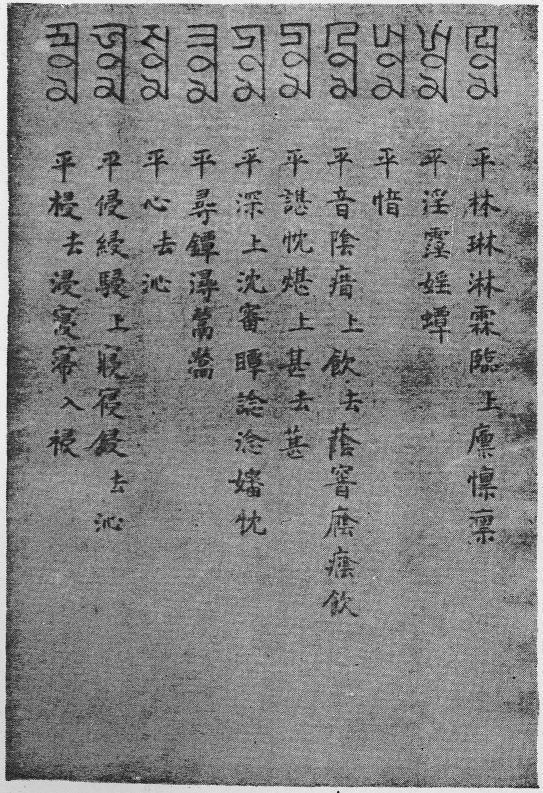 ꡙꡞꡏ 平林琳淋霖臨上廩懍禀
ꡗꡞꡏ 平淫霪婬蟫
ꡭꡞꡏ 平愔
ꡝꡞꡏ 平音陰瘖上飲去蔭窨廕癊飲
ꡚꡞꡏ 平諶忱煁上甚去甚
ꡮꡞꡏ 平深上沈審瞫諗淰嬸忱
ꡕꡞꡏ 平尋鐔潯
ꡛꡞꡏ 平心去沁
ꡑꡞꡏ 平侵綅駸上寢寑鋟去沁
ꡒꡞꡏ 平祲去浸寖入祲